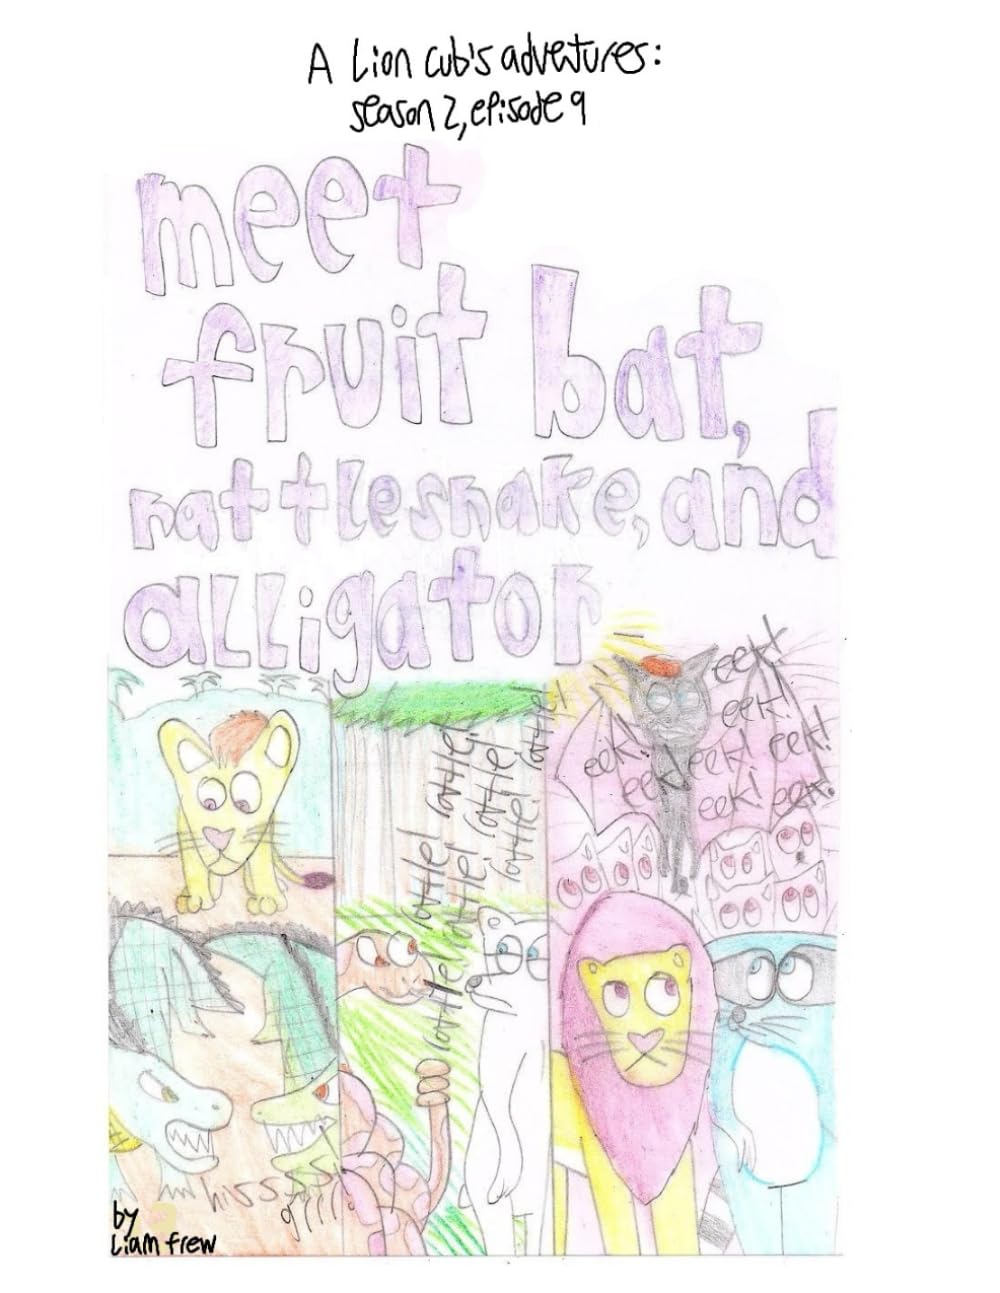 A Lion cub's adventures:
season 2, episode 9
meet
fruit bat,
rattlesnake, and
alligator
eek!
eek!
eek!
eek!
eek!
eek!
eek!
eek!
rattle! rattle!
rattle! rattle! rattle!
rattle! rattle!
rattle!
hissss
grrrr
by
Liam frew